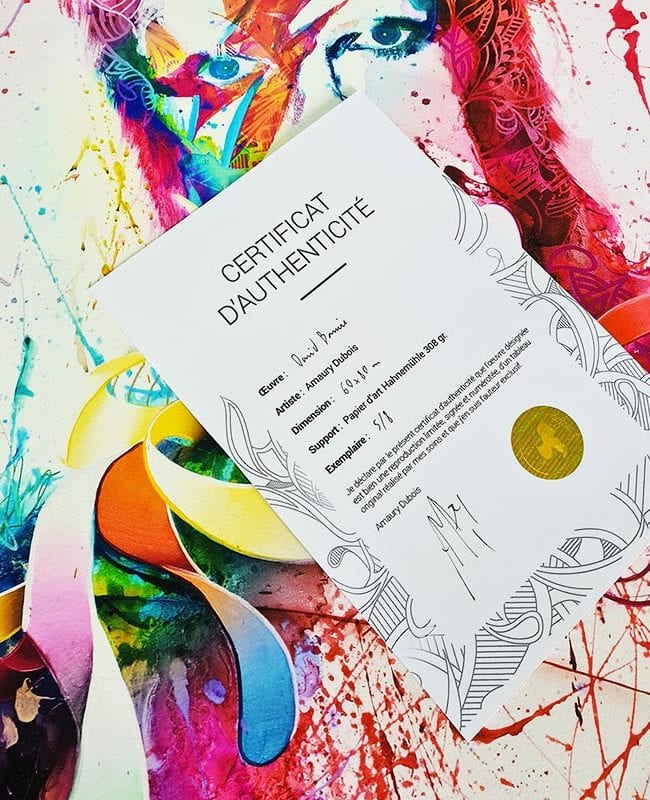 CERTIFICAT
D'AUTHENTICITÉ
Œuvre : David Bowie
Artiste : Amaury Dubois
Dimension : 60x80 cm
Support : Papier d'art Hahnemühle 308 gr.
Exemplaire : 5/8
Je déclare par le présent certificat d'authenticité que l'œuvre désignée
est bien une reproduction limitée, signée et numérotée, d'un tableau
original réalisé par mes soins et que j'en suis l'auteur exclusif.
Amaury Dubois